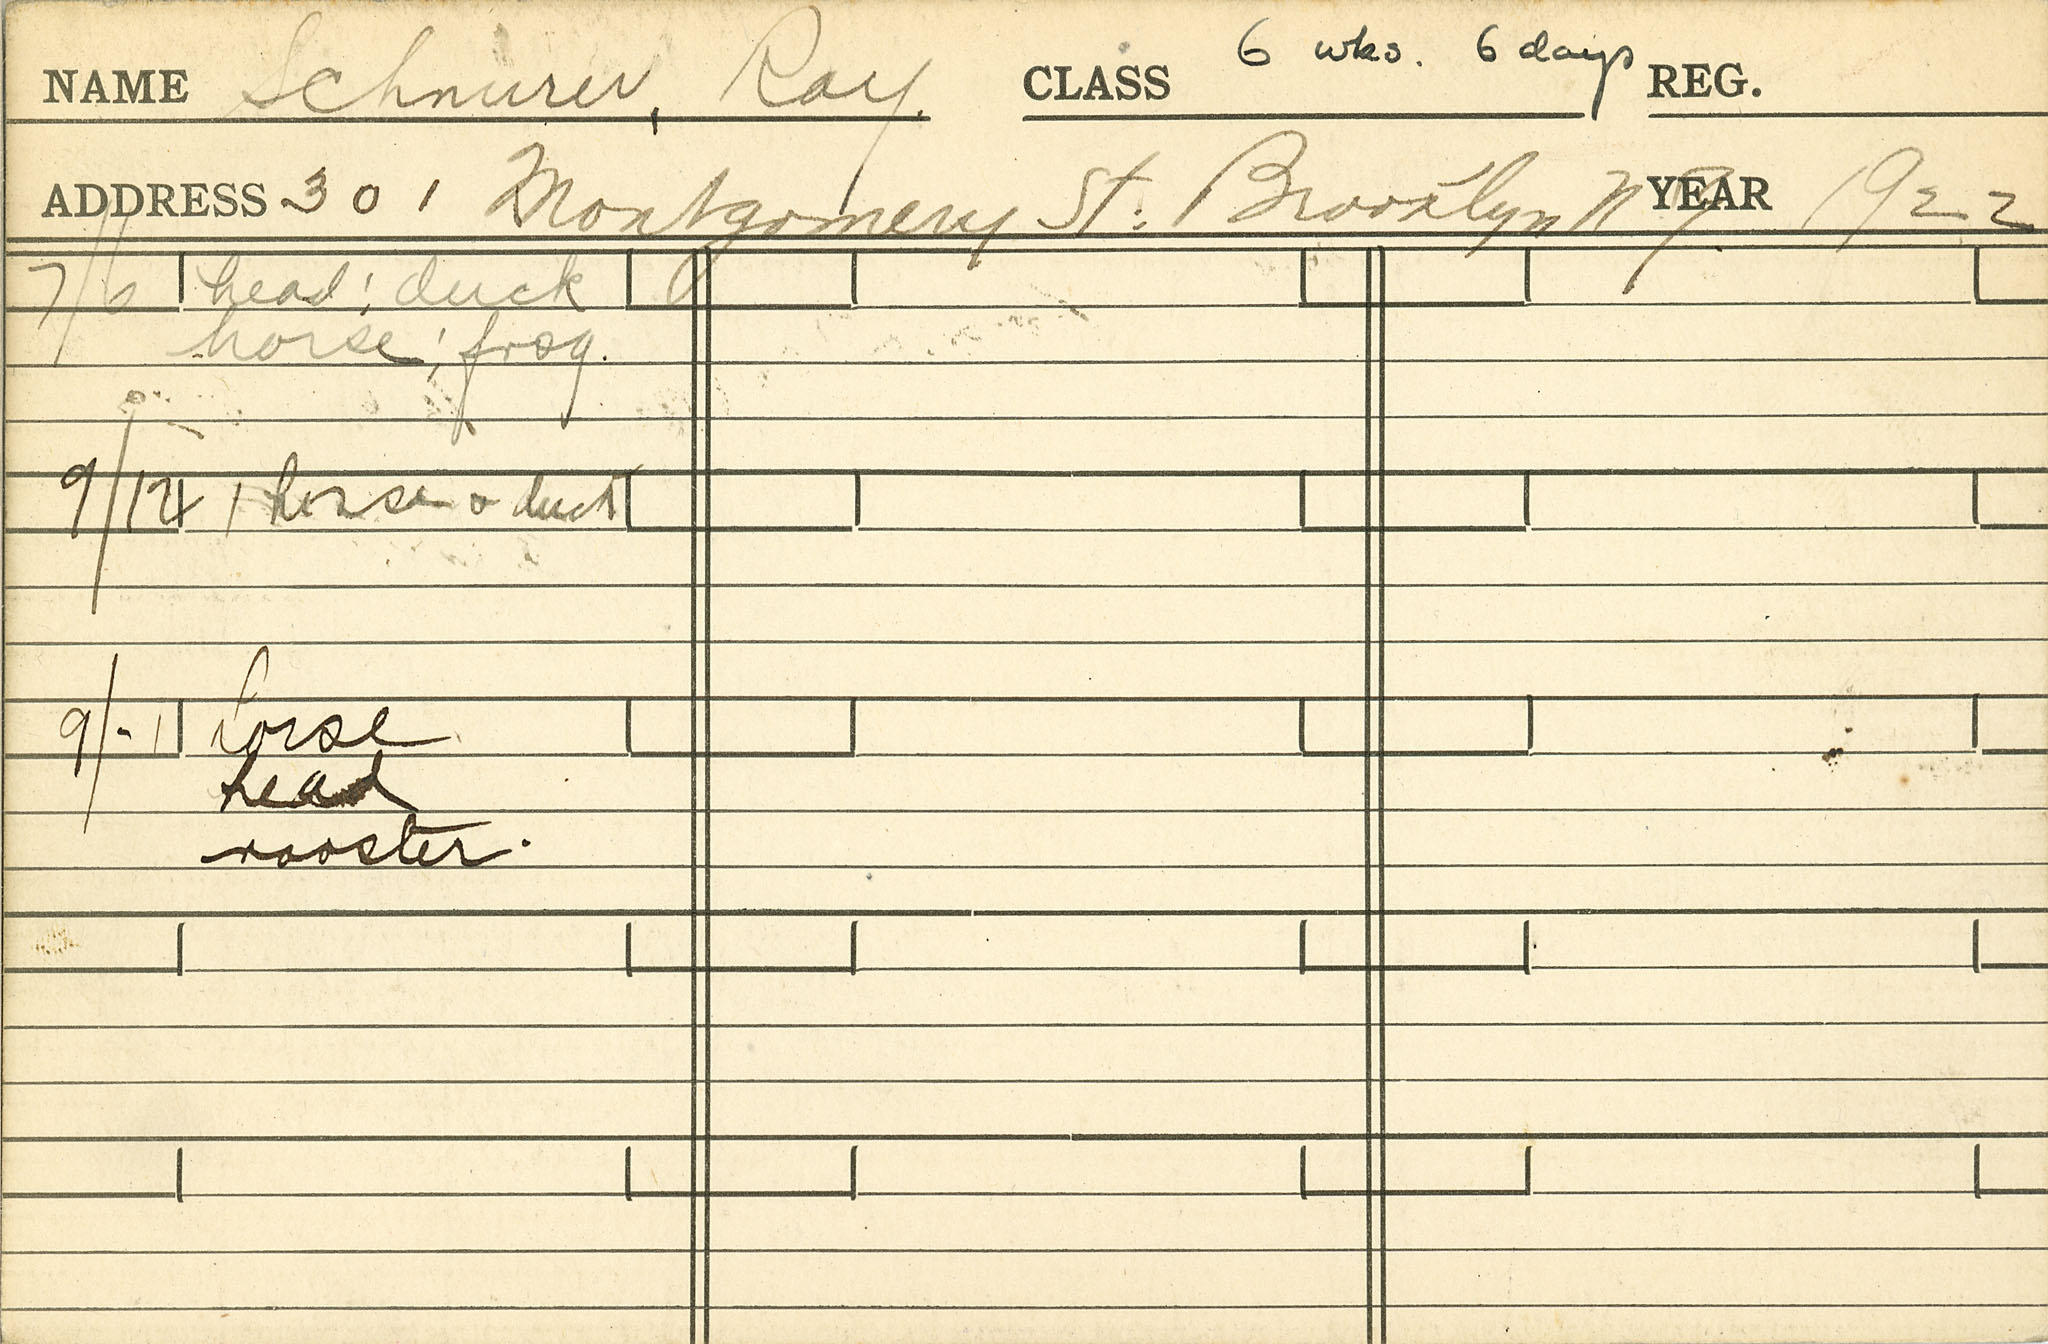 NAME Schnurer, Ray. CLASS 6 wks. 6 days REG.
ADDRESS 301 Montgomery St. Brooklyn N.Y. YEAR 1922
7/6 head; duck
horse; frog.
9/14 1 horse & duck
9/-1 horse
head
rooster.